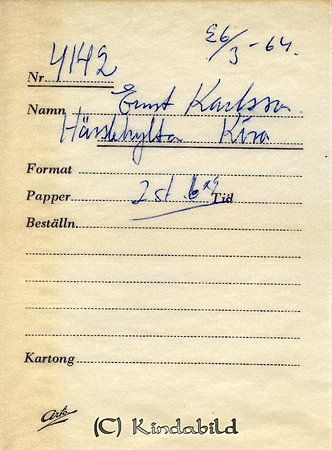 26/3 - 64.
Nr. 4142
Namn Ernst Karlsson
Hässlehylta Kisa
Format
Papper 2 st. 6 Tid
Beställn.
Kartong
Ark
(C) Kindabild